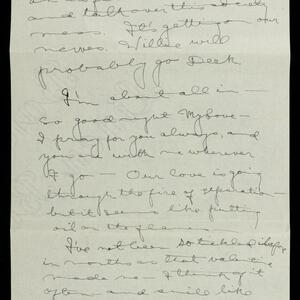 and talk over this society
mess. It's getting on our
nerves. Willie will
probably go Deek
I'm about all in —
so good night My Love —
I pray for you always, and
you are with me wherever
I go — Our love is going
through the fire of separation —
but it seems like putting
oil on the flames.
I've not been so tickled
in months as that valentine
made me — I think of it
often and smile like